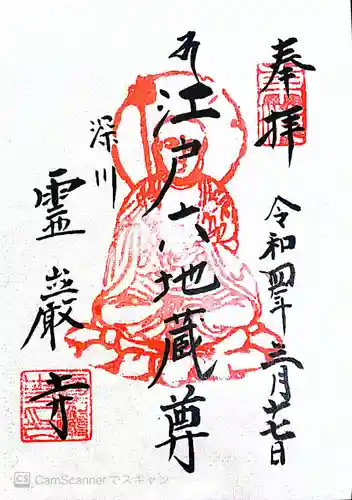 奉拝
令和四年三月廿七日
江戸六地蔵尊
深川
霊巌寺
CS CamScannerでスキャン